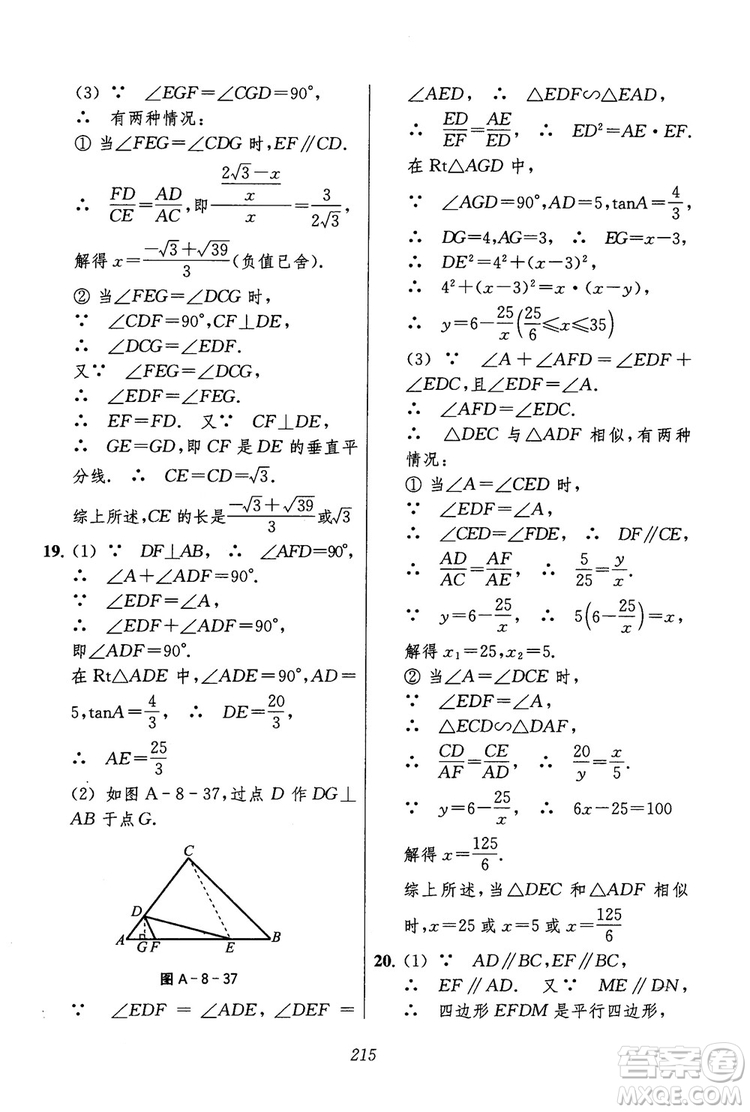 (3) ∵ ∠EGF=∠CGD=90°,
∴ 有两种情况:
① 当∠FEG=∠CDG 时,EF∥CD.
∴ FD/CE=AD/AC,即((2√3-x)/x)/x=3/(2√3),
解得 x=(-√3+√39)/3(负值已舍).
② 当∠FEG=∠DCG 时,
∵ ∠CDF=90°,CF⊥DE,
∴ ∠DCG=∠EDF.
又∵ ∠FEG=∠DCG,
∴ ∠EDF=∠FEG.
∴ EF=FD. 又∵ CF⊥DE,
∴ GE=GD,即 CF 是 DE 的垂直平
分线. ∴ CE=CD=√3.
综上所述,CE 的长是(-√3+√39)/3或√3
19. (1) ∵ DF⊥AB, ∴ ∠AFD=90°.
∴ ∠A+∠ADF=90°.
∵ ∠EDF=∠A,
∴ ∠EDF+∠ADF=90°,
即∠ADF=90°.
在 Rt△ADE 中,∠ADE=90°,AD=
5,tanA=4/3, ∴ DE=20/3,
∴ AE=25/3
(2) 如图 A-8-37,过点 D 作 DG⊥
AB 于点 G.
C
D
A
G F
E
B
图 A-8-37
∵ ∠EDF = ∠ADE, ∠DEF =
∠AED, ∴ △EDF∽△EAD,
∴ ED/EF=AE/ED. ∴ ED²=AE·EF.
在 Rt△AGD 中,
∵ ∠AGD=90°,AD=5,tanA=4/3,
∴ DG=4,AG=3, ∴ EG=x-3.
∴ DE²=4²+(x-3)².
∴ 4²+(x-3)²=x·(x-y),
∴ y=6-25/x(25/6≤x≤35)
(3) ∵ ∠A+∠AFD=∠EDF+
∠EDC,且∠EDF=∠A.
∴ ∠AFD=∠EDC.
∴ △DEC 与△ADF 相似,有两种
情况:
① 当∠A=∠CED 时,
∵ ∠EDF=∠A,
∴ ∠CED=∠FDE, ∴ DF∥CE.
∴ AD/AC=AF/AE. ∴ 5/25=y/x.
∵ y=6-25/x, ∴ 5(6-25/x)=x,
解得 x₁=25,x₂=5.
② 当∠A=∠DCE 时,
∵ ∠EDF=∠A,
∴ △ECD∽△DAF,
∴ CD/AF=CE/AD. ∴ 20/y=x/5.
∵ y=6-25/x, ∴ 6x-25=100
解得 x=125/6.
综上所述,当△DEC 和△ADF 相似
时,x=25 或 x=5 或 x=125/6
20. (1) ∵ AD∥BC,EF∥BC,
∴ EF∥AD. 又∵ ME∥DN,
∴ 四边形 EFDM 是平行四边形,
215
答案圈